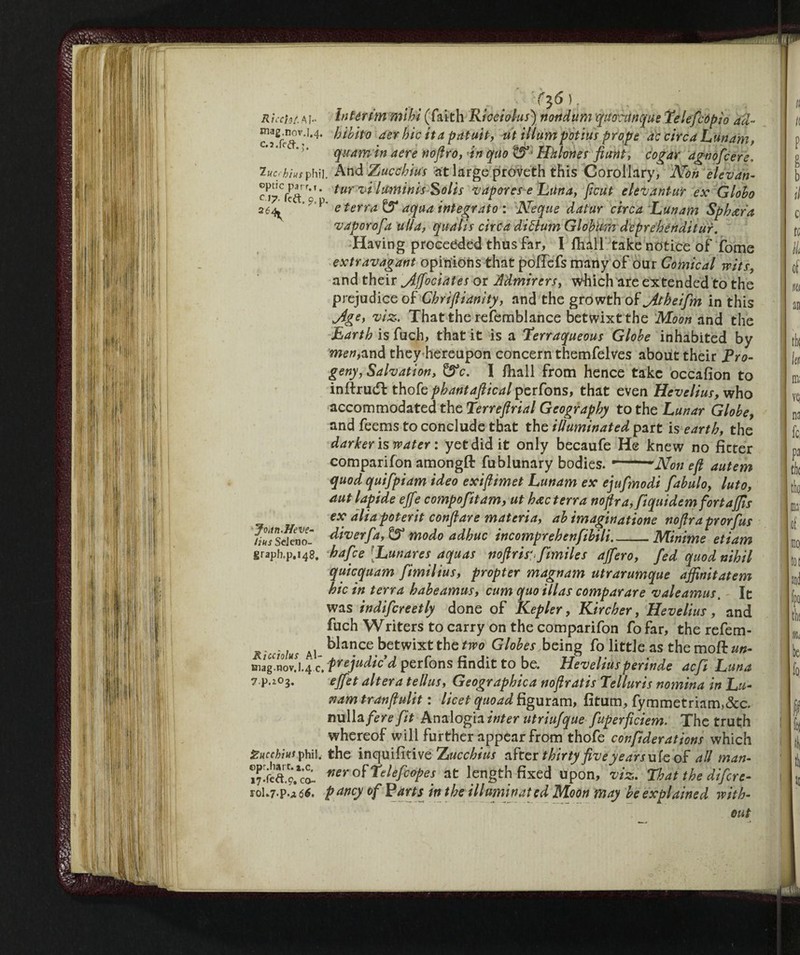 (36)
Ricciol. Al- Interim mihi (ſaith Ricciolus) nondum quocunque Teleſcopio ad-
mag.nov.l.4. hibito aer hic ita patuit, ut illum potius prope ac circa Lunam,
c.2.ſect.
quam in aere noſtro, in quo & Halones fiunt, cogar agnoſcere.
Zucchius phil. And Zucchius at large proveth this Corollary, Non elevan-
optic part.1. tur vi luminis Solis vapores e Luna, ſicut elevantur ex Globo
c.17. ſect. 9. p.
264. e terra & aqua integrato: Neque datur circa Lunam Sphæra
vaporoſa ulla, qualis circa dictum Globum deprehenditur.
Having proceeded thus far, I ſhall take notice of ſome
extravagant opinions that poſſeſs many of our Comical wits,
and their Aſſociates or Admirers, which are extended to the
prejudice of Chriſtianity, and the growth of Atheiſm in this
Age, viz. That the reſemblance betwixt the Moon and the
Earth is ſuch, that it is a Terraqueous Globe inhabited by
men, and they hereupon concern themſelves about their Pro-
geny, Salvation, &c. I ſhall from hence take occaſion to
inſtruct thoſe phantaſtical perſons, that even Hevelius, who
accommodated the Terreſtrial Geography to the Lunar Globe,
and ſeems to conclude that the illuminated part is earth, the
darker is water: yet did it only becauſe He knew no fitter
compariſon amongſt ſublunary bodies. —— Non eſt autem
quod quiſpiam ideo exiſtimet Lunam ex ejuſmodi ſabulo, luto,
aut lapide eſſe compoſitam, ut hæc terra noſtra, ſiquidem fortaſſis
ex alia poterit conſtare materia, ab imaginatione noſtra prorſus
Joan.Heve-
lius Seleno- diverſa, & modo adhuc incomprehenſibili. —— Minime etiam
graph.p.148. haſce [Lunares aquas noſtris ſimiles aſſero, ſed quod nihil
quicquam ſimilius, propter magnam utrarumque affinitatem
hic in terra habeamus, cum quo illas comparare valeamus. It
was indiſcreetly done of Kepler, Kircher, Hevelius, and
ſuch Writers to carry on the compariſon ſo far, the reſem-
blance betwixt the two Globes being ſo little as the moſt un-
Ricciolus Al-
mag.nov.l.4 c. prejudic'd perſons find it to be. Hevelius perinde acſi Luna
7.p.203. eſſet altera tellus, Geographica noſtratis Telluris nomina in Lu-
nam tranſtulit: licet quoad figuram, ſitum, ſymmetriam, &c.
nulla fere ſit Analogia inter utriuſque ſuperficiem. The truth
whereof will further appear from thoſe conſiderations which
Zucchius phil. the inquiſitive Zucchius after thirty five years uſe of all man-
opt.part.1.c.
17.ſect.9.co- ner of Teleſcopes at length fixed upon, viz. That the diſcre-
rol.7.p.266. pancy of Parts in the illuminated Moon may be explained with-
out